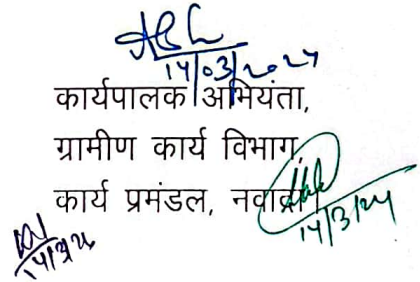 14/03/2024
कार्यपालक अभियंता,
ग्रामीण कार्य विभाग,
कार्य प्रमंडल, नवादा।
14/3/24